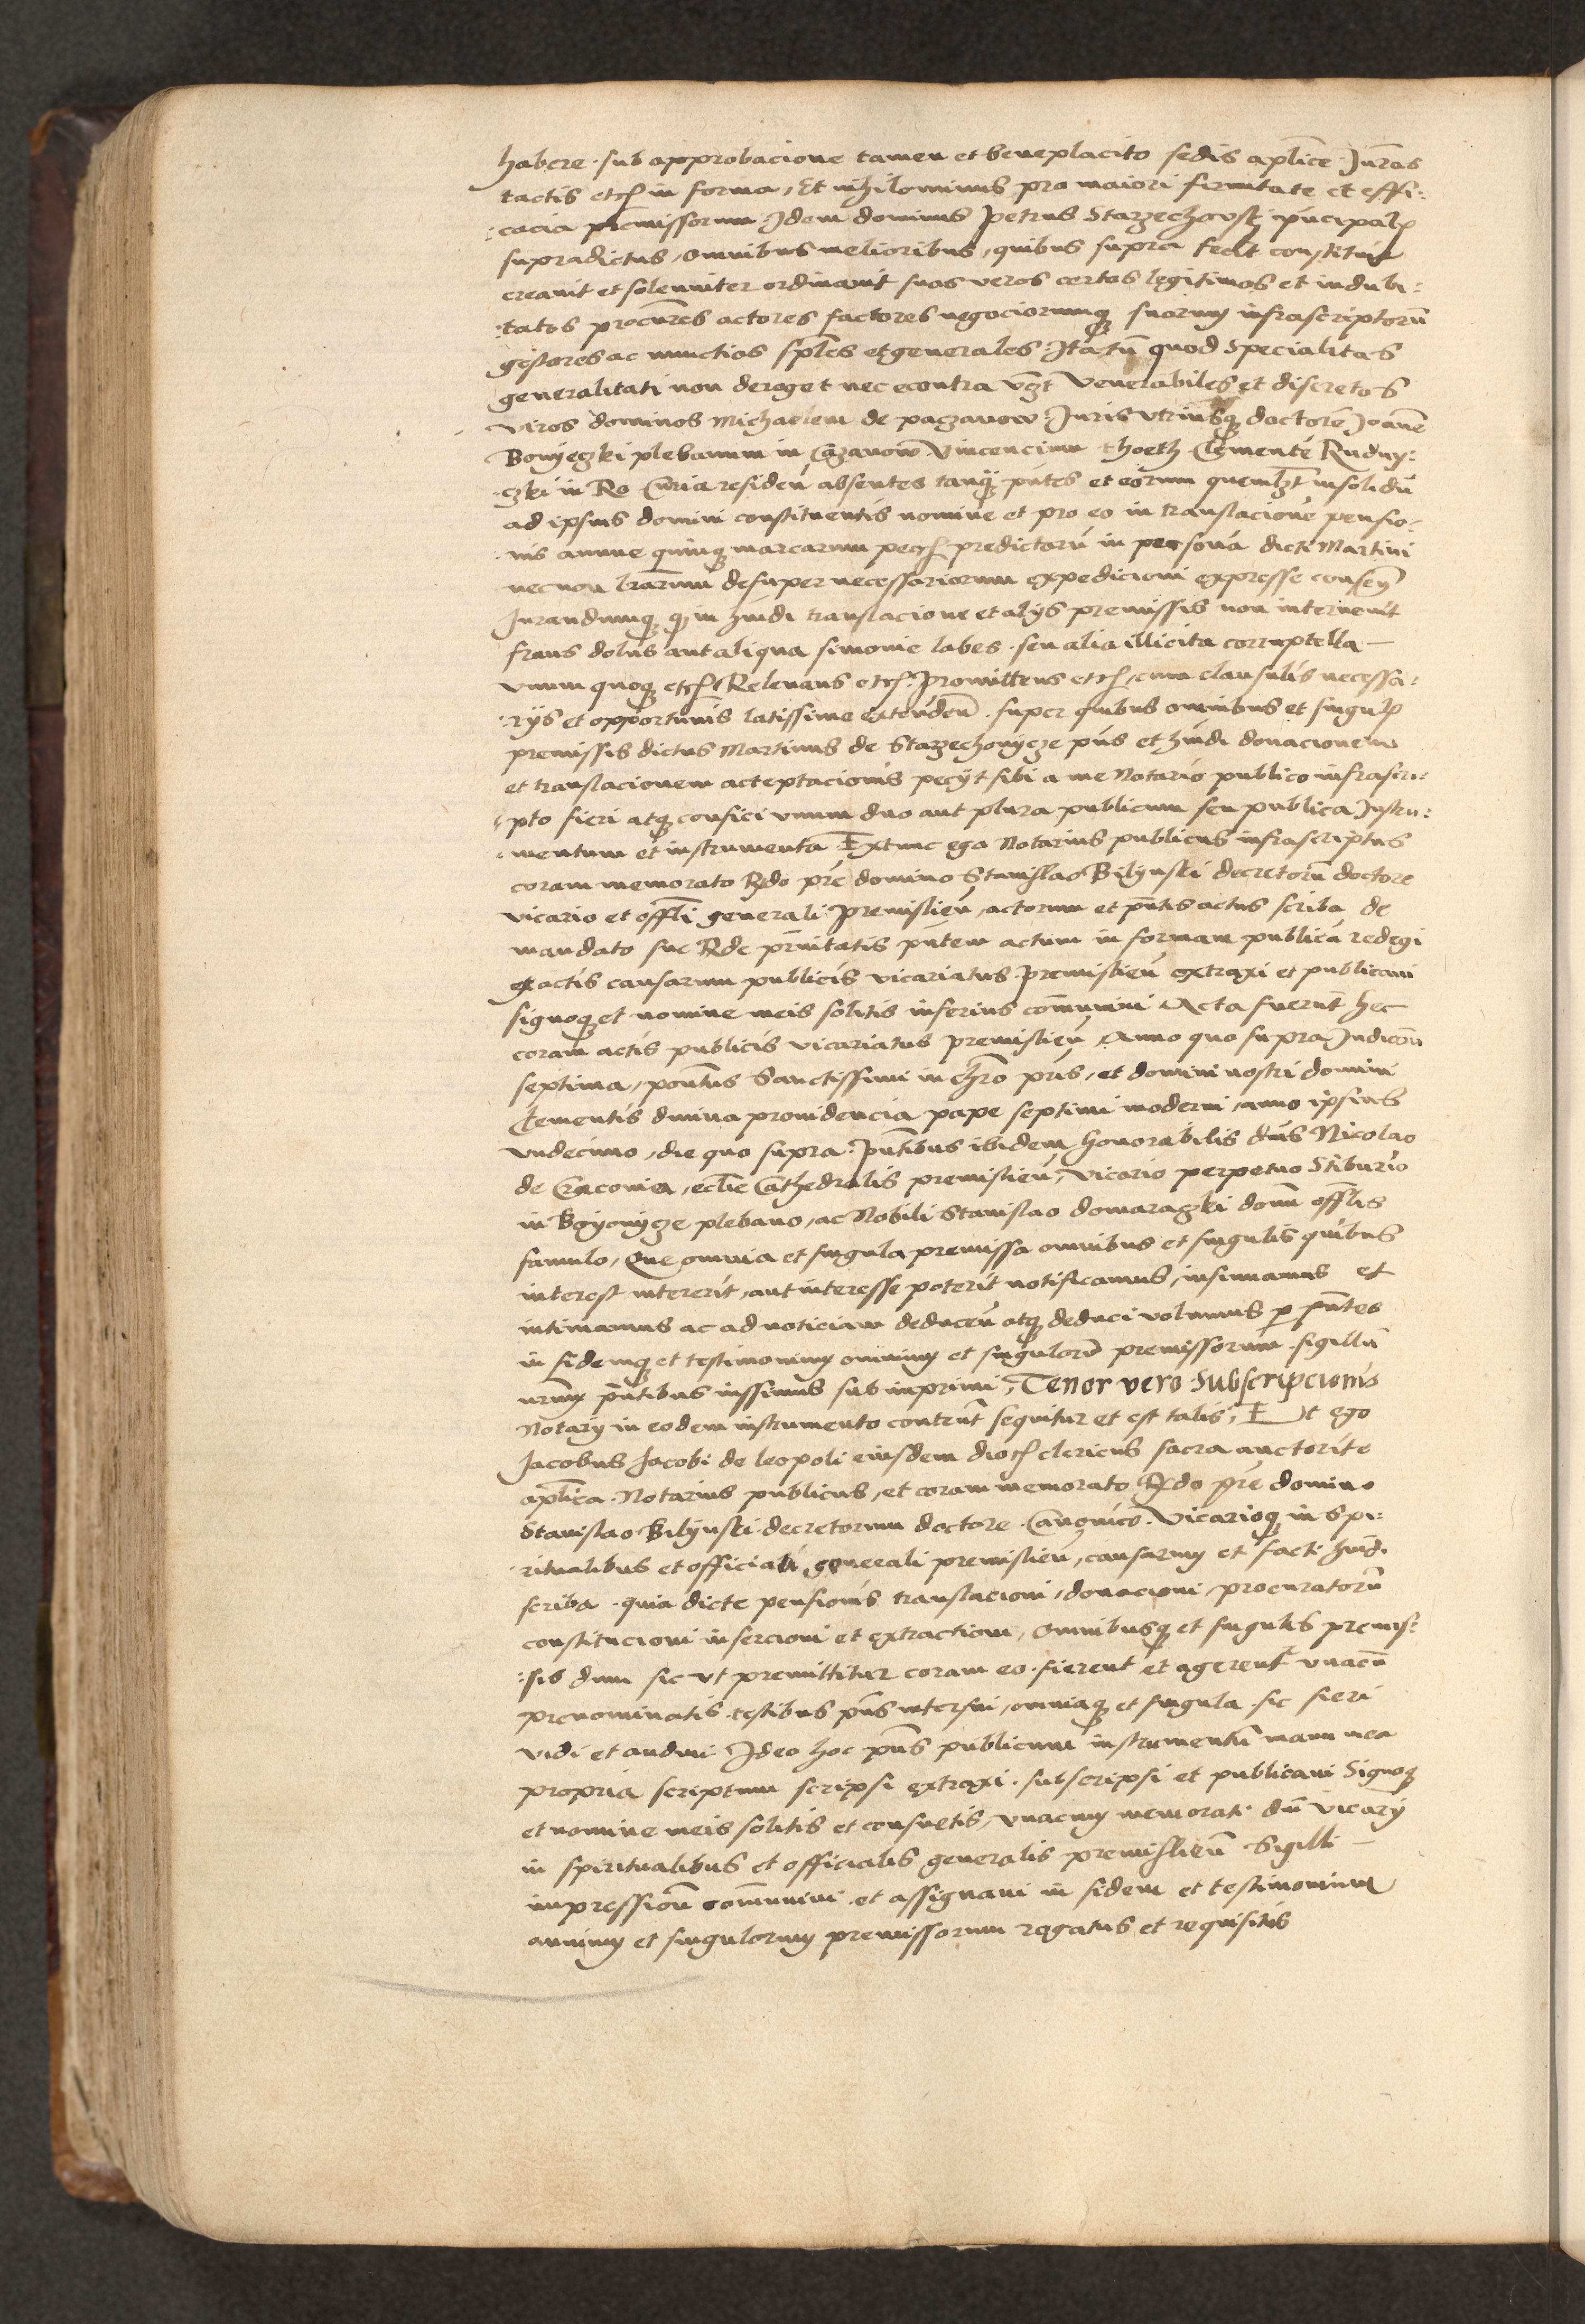 habere · sub approbacione tamen et beneplacito sedis aplice · Jurans
tactis etc in forma, Et nihilominus pro maiori firmitate et effi:
:cacia premissorum Idem dominus petrus Starzechovskj principal
supradictus, omnibus melioribus, quibus supra fecit constituit
creauit et solenniter ordinauit suos veros certos legitimos et indubi:
:tatos procures actores factores negociorumque suorum infrascriptorum
gestores ac nunctios sples et generales : Ita tn quod Specialitas
generalitati non deroget nec econtra vzt Venerabiles et discretos
viros dominos Michaelem de paczanow Juris vtriusque doctore Joanne
Bonyeczki plebanum in Cazanow Vincencium thoeth Clemente Rudny:
:czki in Ro Curia residen absentes tanq pntes et eorum quemlzt insolidu
ad ipsius domini constituentis nomine et pro eo in translacione pensio:
nis annue quinque marcarum pecc predictaru in persona dicti Martini
necnon lrarum desuper necessariorum expedicioni expresse consen
Jurandumque q in hmdi translacione et alijs premissis non interuenit
fraus dolus aut aliqua simonie labes · seu alia illicita corruptella –
vnum quoque etc Releuans etc Promittens etc, cum clausulis necessa:
:rijs et opportunis latissime extenden · super quibus omnibus et singul
premissis dictus Martinus de Starzechouycze pns et hmdi donacionem
et translacionem acceptacionis pecijt sibi a me Notario publico infrascri:
:pto fieri atque confici vnum duo aut plura publicum seu publica Instru:
:mentum et instrumenta Extunc ego Notarius publicus infrascriptus
coram memorato Rdo pre domino Stanislao Bilynski decretoru doctore
vicario et offli generali Premislien, actorum et pntis actus scriba de
mandato sue Rde pnitatis pntem actum in formam publica redegi
ex actis causarum publicis vicariatus Premislien extraxi et publicaui
signoque et nomine meis solitis inferius communiui Acta fuerunt hec
coram actis publicis vicariatus Premislien Anno quo supra Indicon
septima, pontus Sanctissimi in chro pris, et domini nostri domini
Clementis diuina prouidencia pape septimi moderni, anno ipsius
vndecimo, die quo supra · Pntibus ibidem honorabilis dnis Nicolao
de Craconia, eclie Cathedralis premislien, Vicario perpetuo Stiburio
in Boyonycze plebano, ac Nobili Stanislao domarazki domi offlis
famulo, Que omnia et singula premissa omnibus et singulis quibus
interest intererit, aut interesse poterit notificamus, insinuamus et
intimamus ac ad noticiam deducen atque deduci volumus p pntes
in fidemque et testimonium omnium et singulorum premissorum · sigillu
nrum pntibus iussimus subimprimi, Tenor vero Subscripcionis
Notarij in eodem instrumento content sequitur et est talis, Et ego
Jacobus Jacobi de leopoli eiusdem dioc clericus sacra auctorite
aplica Notarius publicus, et coram memorato Rdo pre domino
Stanislao Bilynski decretorum doctore Canonico Vicarioque in Spi:
:ritualibus et officiali generali premislien, causarum et facti hmdi
scriba · quia dicte pensionis translacioni, donacioni, procuratoru
constitucioni insercioni et extractioni, Omnibusque et singulis premis:
:sis dum sic vt premittitur coram eo · fierent et agerent vnacu
prenominatis testibus pns interfui, omniaque et singula sic fieri
vidi et audiui Ideo hoc pns publicum instrumentu manu mea
propria scriptum scripsi extraxi · subscripsi et publicaui Signoque
et nomine meis solitis et consuetis, vnacum memorati dni vicarij
in spiritualibus et officialis generalis premislien Sigilli –
impression communiui et assignaui in fidem et testimonium
omnium et singulorum premissorum rogatus et requisitis